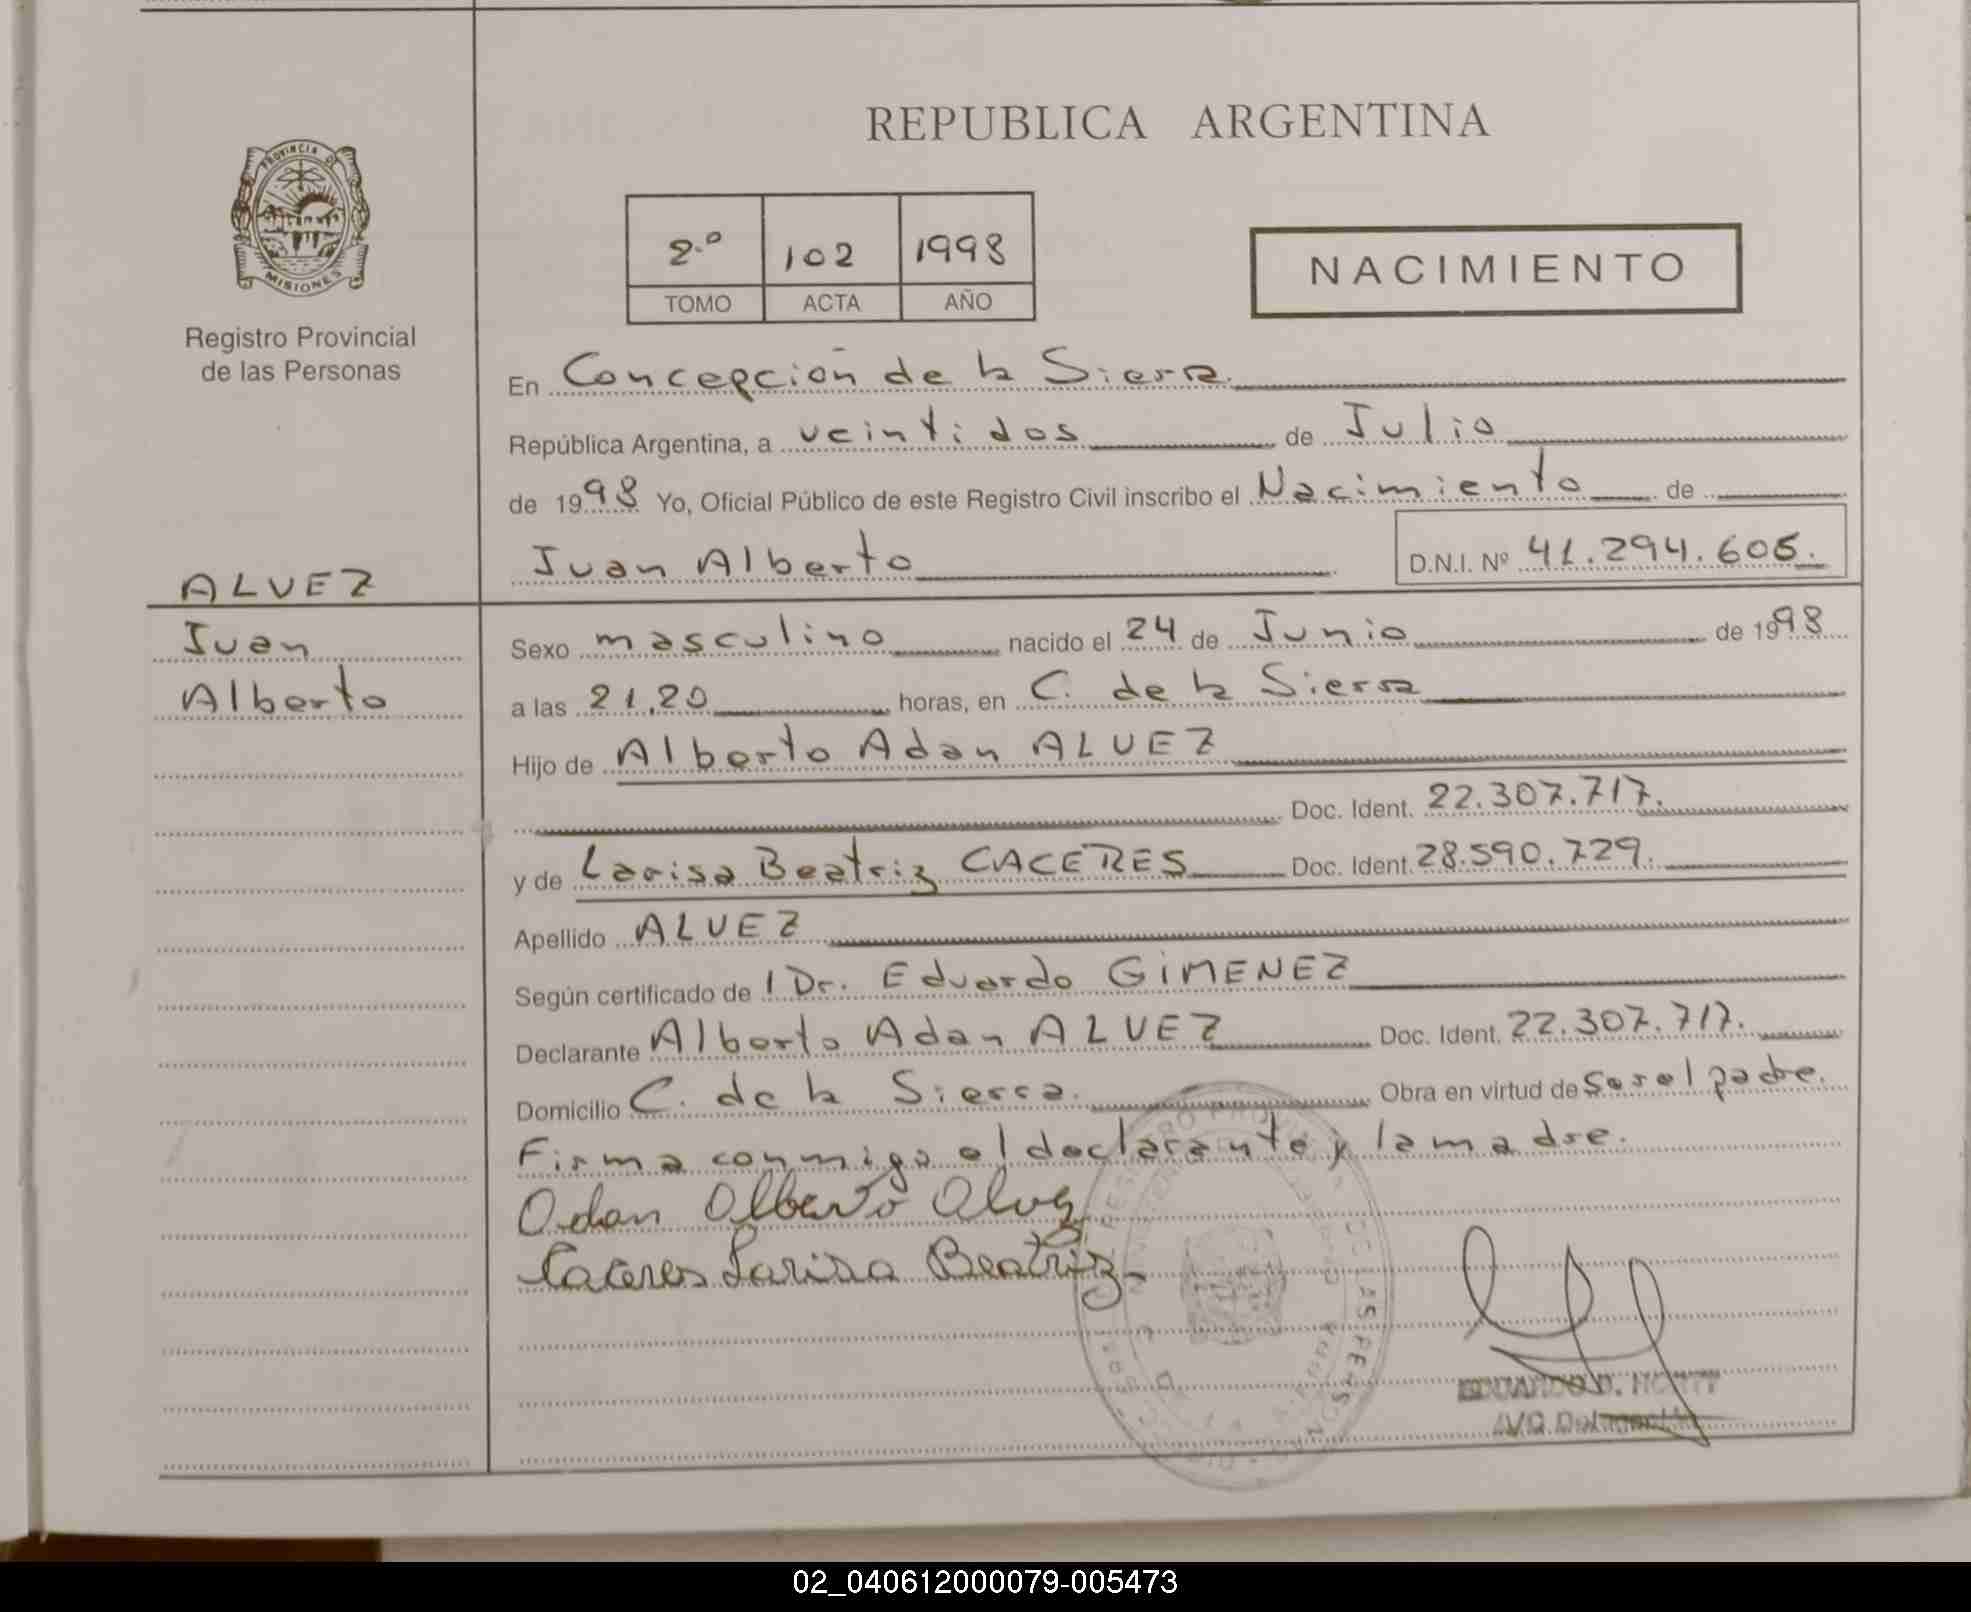 REPUBLICA ARGENTINA
PROVINCIA DE
MISIONES
Registro Provincial
de las Personas
2.º 102 1998
TOMO ACTA AÑO
NACIMIENTO
En Concepción de la Sierra.
República Argentina, a veintidos de Julio
de 1998 Yo, Oficial Público de este Registro Civil inscribo el Nacimiento de
Juan Alberto D.N.I. Nº 41.294.605.
ALVEZ
Juan
Alberto
Sexo masculino nacido el 24 de Junio de 1998
a las 21,20 horas, en C. de la Sierra
Hijo de Alberto Adan ALVEZ
Doc. Ident. 22.307.717.
y de Larisa Beatriz CACERES Doc. Ident. 28.590.729.
Apellido ALVEZ
Según certificado de l Dr. Eduardo GiMENEZ
Declarante Alberto Adan ALVEZ Doc. Ident. 22.307.717.
Domicilio C. de la Sierra. Obra en virtud de ser el padre.
Firma conmigo el declarante y la madre.
Adan Alberto Alvez
Caceres Larisa Beatriz
EDUARDO D.
02_040612000079-005473